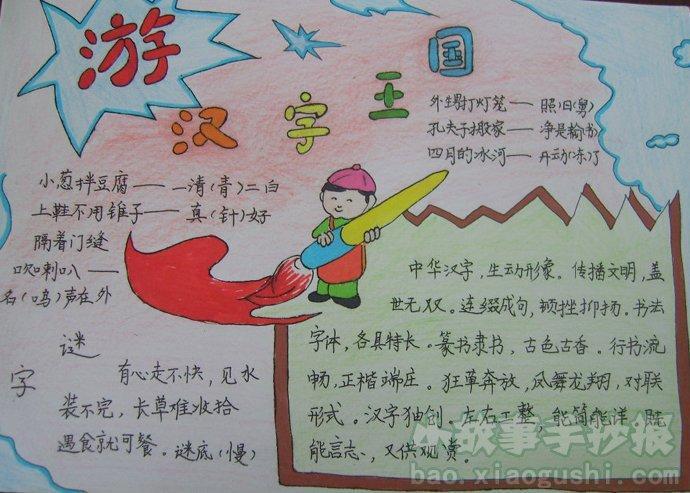 游
汉字王国
外甥打灯笼——照旧(舅)
孔夫子搬家——净是输(书)
四月的冰河——开动(冻)了
小葱拌豆腐——一清(青)二白
上鞋不用锥子——真(针)好
隔着门缝
吹喇叭——
名(鸣)声在外
字谜
有心走不快,见水
装不完,长草难收拾
遇食就可餐。谜底(慢)
中华汉字,生动形象。传播文明,盖
世无双。连缀成句,顿挫抑扬。书法
字体,各具特长。篆书隶书,古色古香。行书流
畅,正楷端庄。狂草奔放,凤舞龙翔,对联
形式。汉字独创。左右工整。能简能详,既
能言志,又供观赏。
小故事手抄报
bao.xiaogushi.com